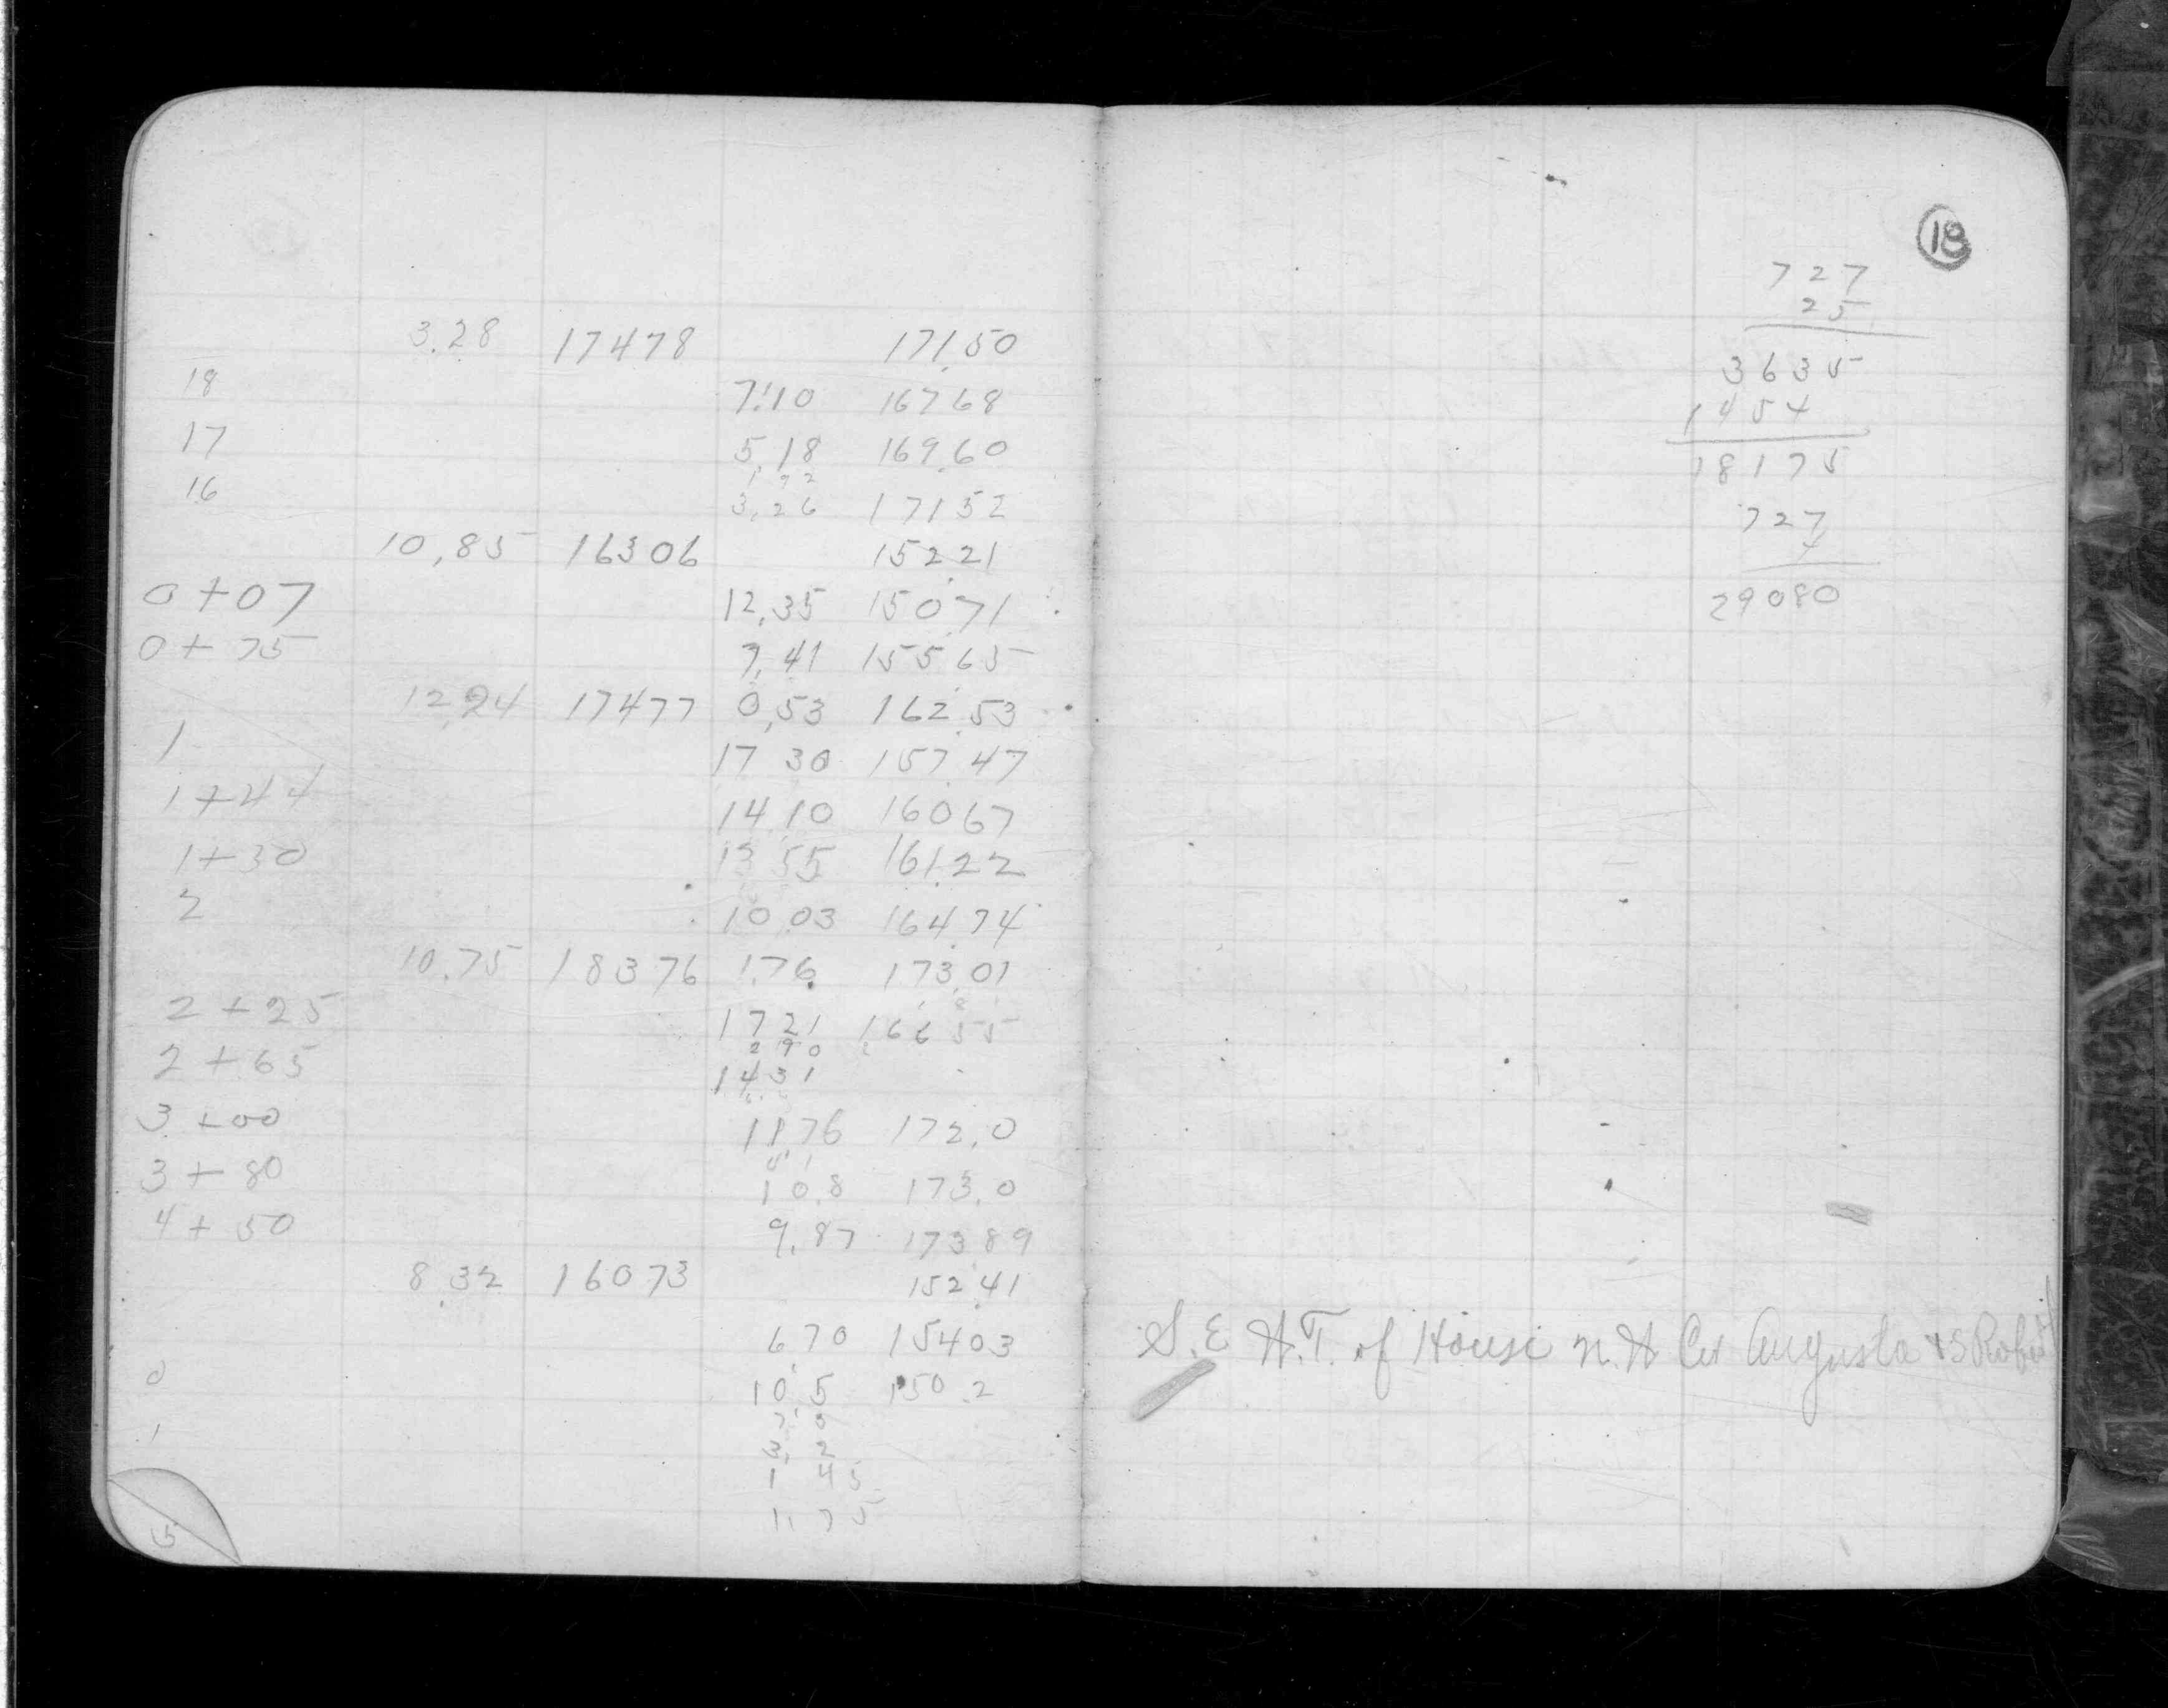 3.28 17478 171.50
18 7.10 16768
17 5.18 169.60
1 92
16 3.26 17152
10.85 16306 152.21
0+07 12.35 15071
0+75 7.41 155.65
12.24 17477 0.53 162.53
1 17 30 157.47
1+44 14 10 16067
1+30 13 55 161.22
2 10 03 164.74
10.75 18376 1.76 173.01
2+25 17 21 166 55
2 90
2+65 14 31
3+00 11.76 172.0
3+80 10.8 173.0
4+50 9.87 173.89
8.32 16073 152.41
6.70 15403
0 10.5 150.2
1
3. 2
1 45
1.75
15
18
727
25
3635
1454
18175
727
4
29080
S.E of House Cor Augusta